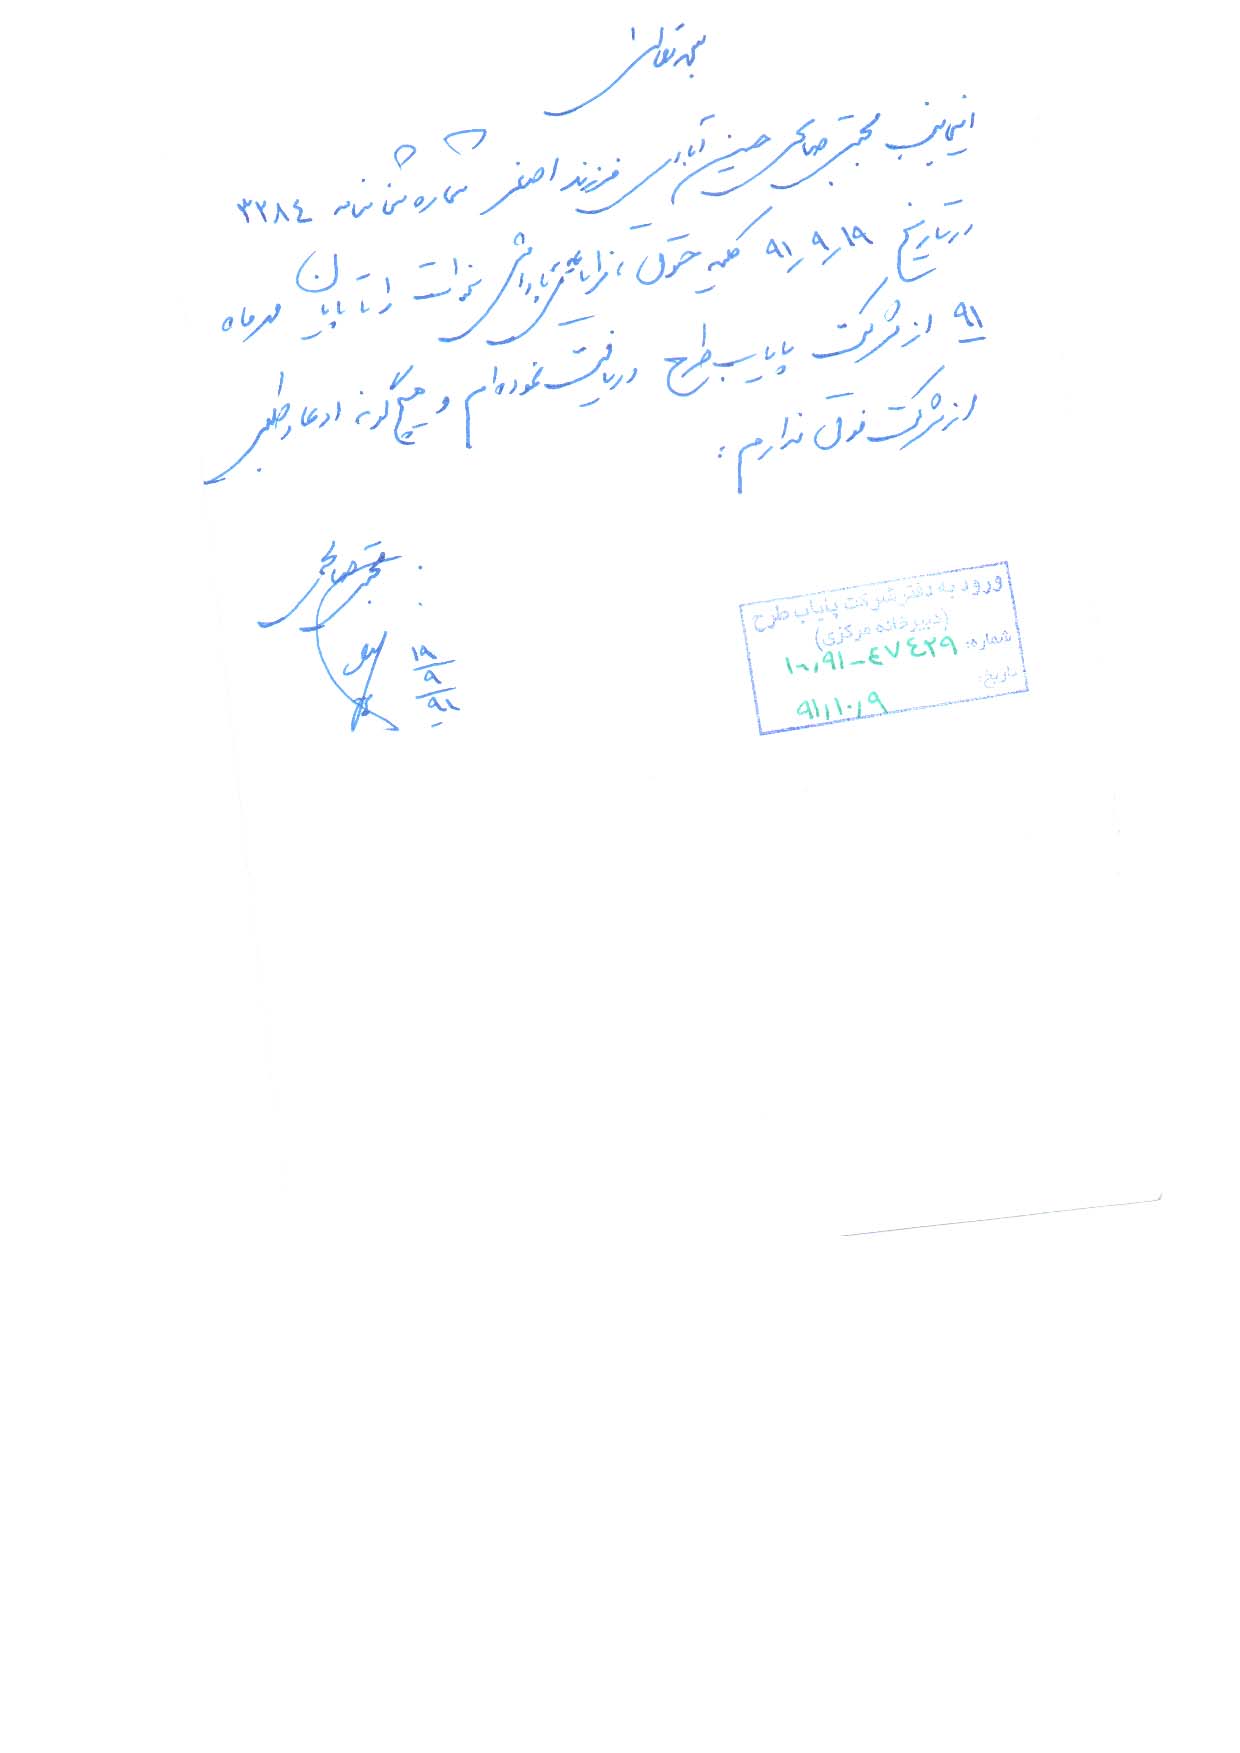 بسمه تعالی
اینجانب مجتبی صالحی حسین آبادی فرزند اصغر شماره شناسنامه ۳۳۸٤
در تاریخ ۹۱٫۹٫۱۹ کلیه حقوق ، مزایا پاداش سنوات را تا پایان مهر ماه
۹۱ از شرکت پایاب طرح دریافت نموده ام و هیچ گونه ادعا و طلبی
از شرکت فوق ندارم :
مجتبی صالحی
۱۹
۹
۹۱
ورود به دفتر شرکت پایاب طرح
(دبیرخانه مرکزی)
شماره: ۱۰٫۹۱-٤۷٤۲۹
تاریخ:
۹۱٫۱۰٫۹